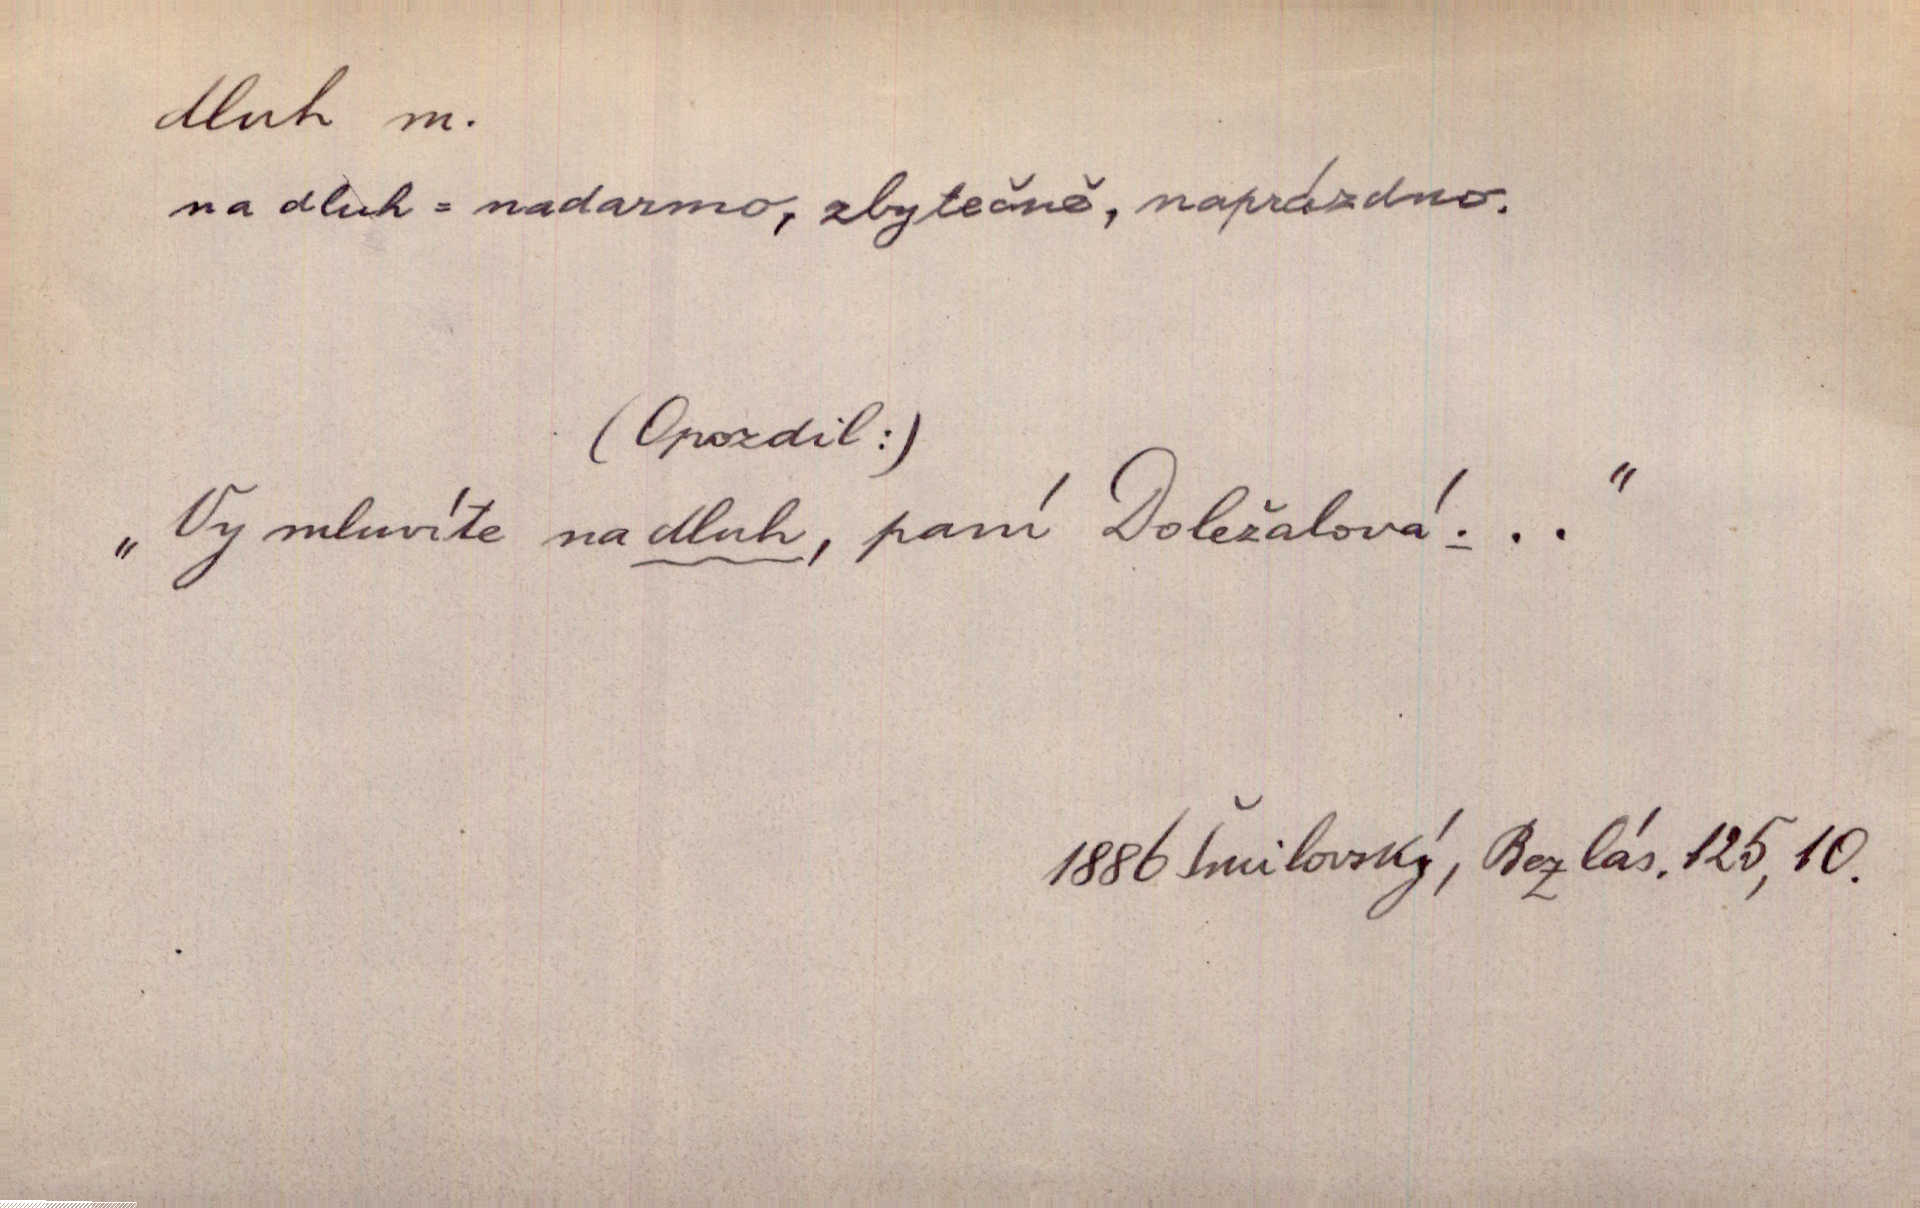 dluh m.
na dluh = nadarmo, zbytečně, naprázdno.
(Opozdil:)
„Vy mluvíte na dluh, paní Doležalová! . . ."
1886 Šmilovský, Bez lás. 125, 10.